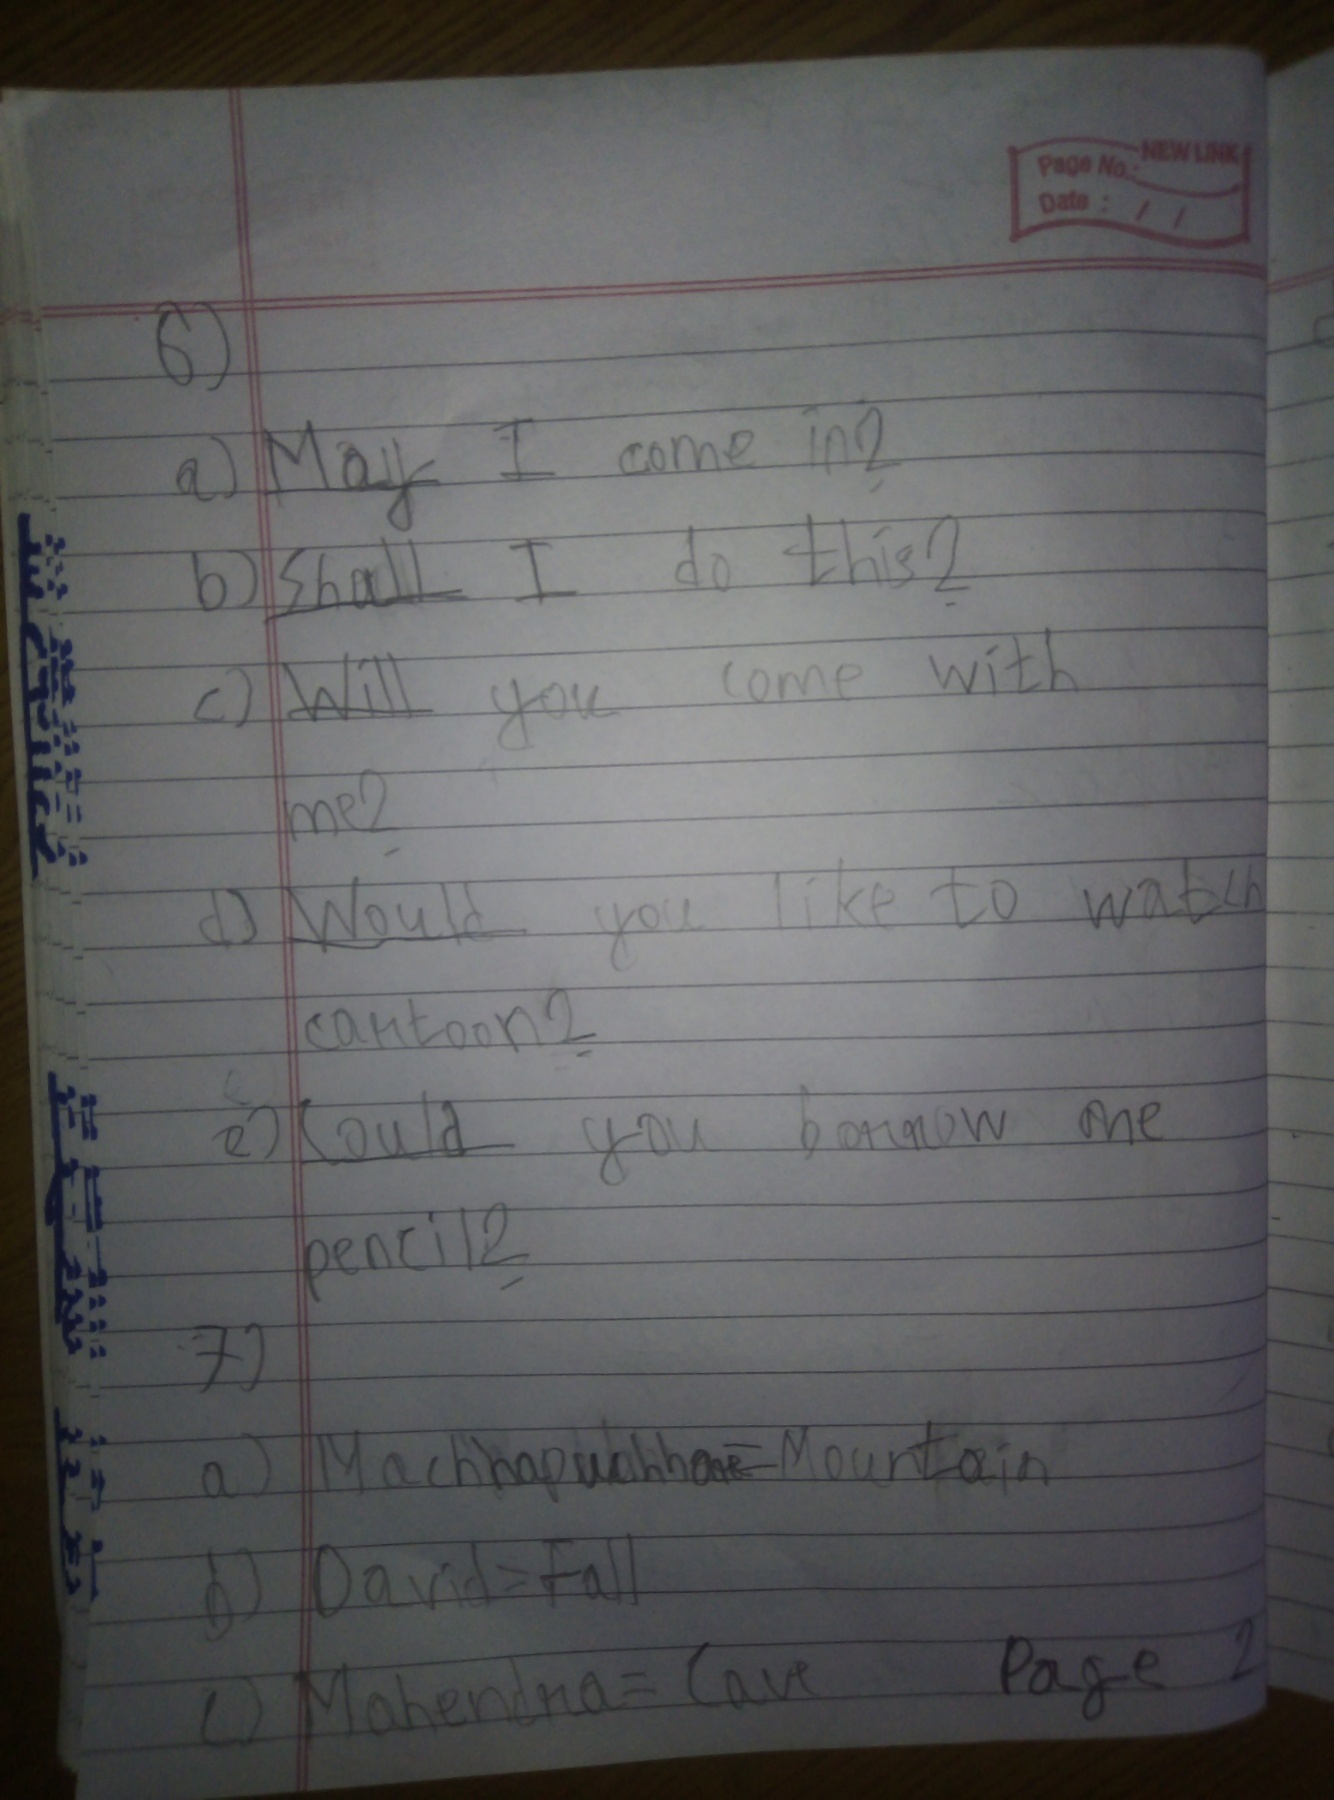 NEW LINK
Page No.:
Date : / /
6)
a) May I come in?
b) Shall I do this?
c) Will you come with
me?
d) Would you like to watch
cartoon?
e) Could you borrow me
pencil?
7)
a) = Mountain
b) David = Fall
c) Mahendra = Cave Page 2